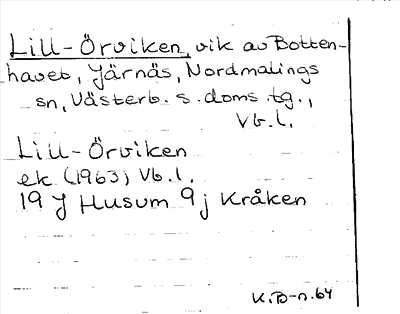 Lill-Örviken, vik av Botten-
havet, Järnäs, Nordmalings
sn, Västerb. s. doms. tg.,
Vb. l.
Lill-Örviken
ek (1963) Vb. l.
19 J Husum 9 j Kråken
K.B-n. 64